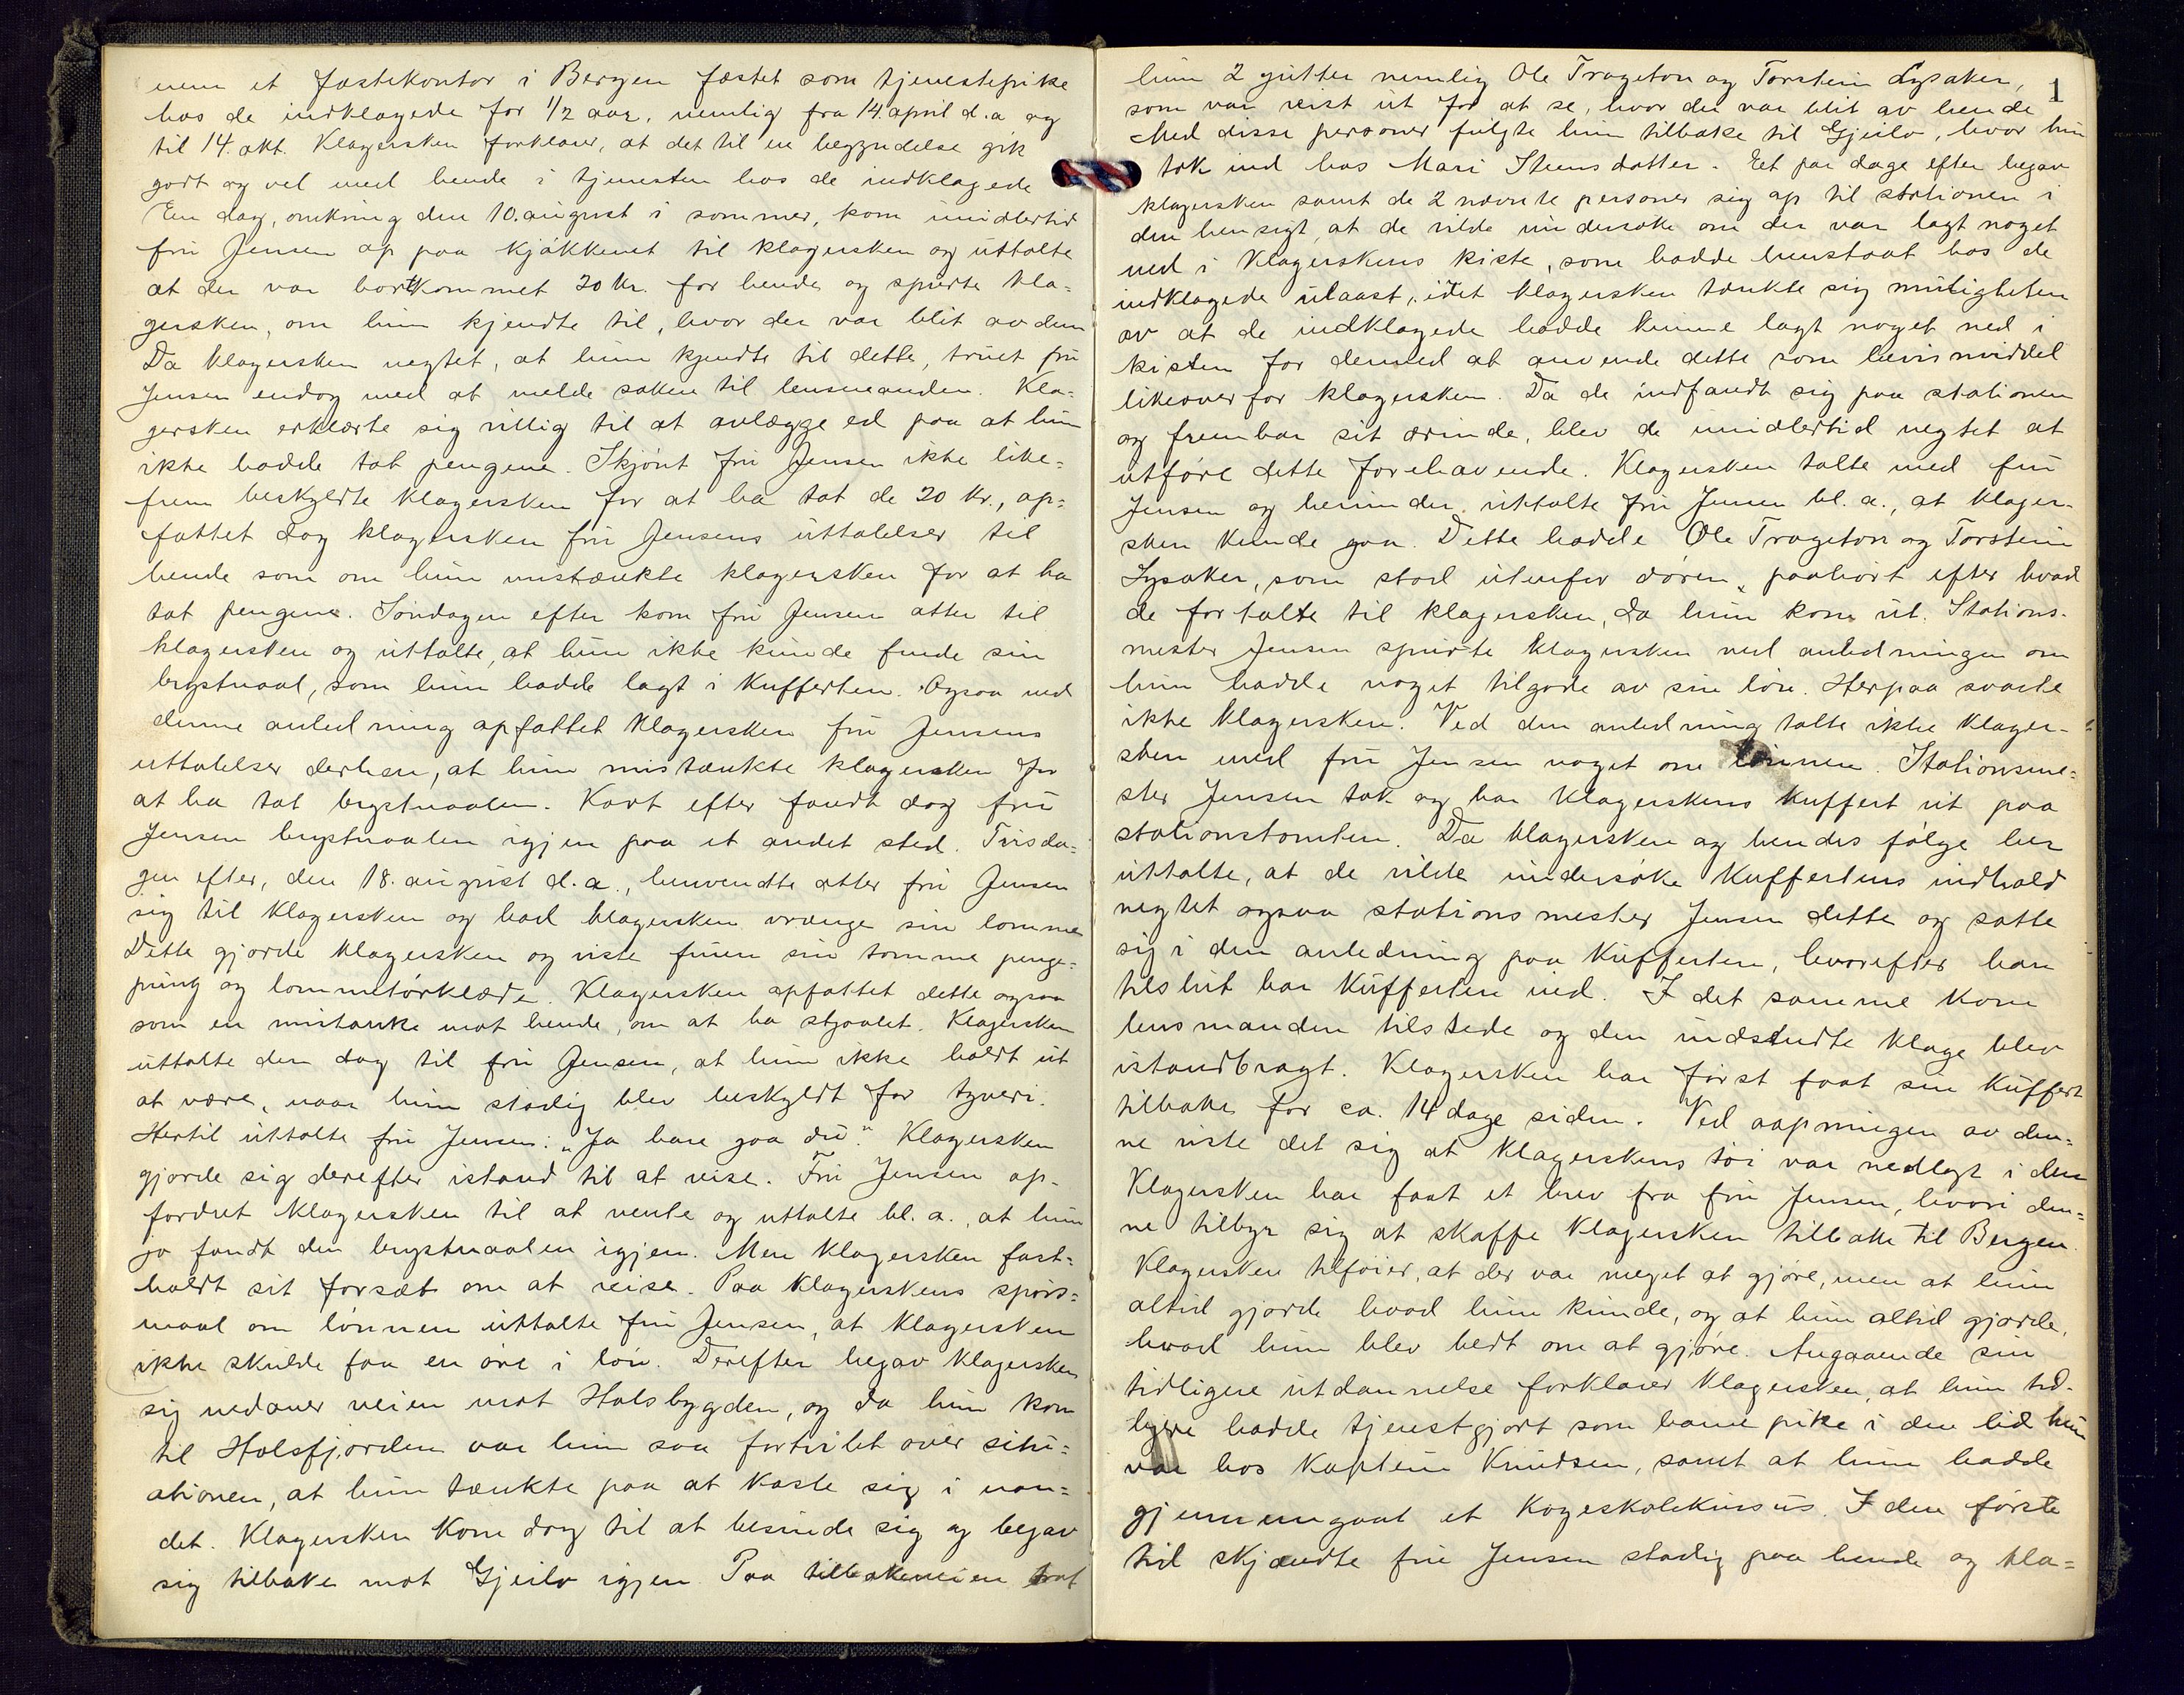 nem et fæstekontor i Bergen fæstet som tjenestepike
hos de indklagede for 1/2 aar, nemlig fra 14. april d.a og
til 14. okt. Klagersken forklarer, at det til en begyndelse gik
godt og vel med hende i tjenesten hos de indklagede
En dag, omkring den 10. august i sommer, kom imidlertid
fru Jensen op paa kjøkkenet til klagersken og uttalte
at der var bortkommet 20 kr. for hende og spurte kla=
gersken, om hun kjendte til, hvor der var blit av dem
Da klagersken negtet, at hun kjendte til dette, truet fru
Jensen endog med at melde saken til lensmanden. Kla=
gersken erklærte sig villig til at avlægge ed paa at hun
ikke hadde tat pengene. Skjønt fru Jensen ikke like=
frem beskyldte klagersken for at ha tat de 20 kr., op=
fattet dog klagersken fru Jensens uttalelser til
hende som om hun mistænkte klagersken for at ha
tat pengene. Søndagen efter kom fru Jensen atter til
klagersken og uttalte, at hun ikke kunde finde sin
brystnaal, som hun hadde lagt i Kufferten. Ogsaa ved
denne anledning opfattet klagersken fru Jensens
uttalelser derhen, at hun mistænkte klagersken for
at ha tat brystnaalen. Kort efter fandt dog fru
Jensen brystnaalen igjen paa et andet sted. Tirsda=
gen efter, den 18. august d.a., henvendte atter fru Jensen
sig til klagersken og bad klagersken vrænge sin lomme
Dette gjorde klagersken og viste fruen sin tomme penge=
pung og lommetørklæde. Klagersken opfattet dette ogsaa
som en mistanke mot hende, om at ha stjaalet. Klagersken
uttalte den dag til fru Jensen, at hun ikke holdt ut
at være, naar hun stadig blev beskyldt for tyveri.
Hertil uttalte fru Jensen: „Ja bare gaa du". Klagersken
gjorde sig derefter istand til at reise. Fru Jensen op-
fordret klagersken til at vente og uttalte bl. a., at hun
jo fandt den brystnaalen igjen. Men klagersken fast=
holdt sit forsæt om at reise. Paa klagerskens spørs=
maal om lønnen uttalte fru Jensen, at klagersken
ikke skulde faa en øre i løn. Derefter begav klagersken
sig nedover veien mot Holsbygden, og da hun kom
til Holsfjorden var hun saa fortvilet over situ=
ationen, at hun tænkte paa at kaste sig i van=
det. Klagersken kom dog til at besinde sig og begav
sig tilbake mot Gjeilo igjen. Paa tilbakeveien traf
1
hun 2 gutter nemlig Ole Trageton og Torstein Lysaker,
som var reist ut for at se, hvor der var blit av hende
Med disse personer fulgte hun tilbake til Gjeilo, hvor hun
tok ind hos Mari Steensdatter. Eet par dage efter begav
klagersken samt de 2 nævnte personer sig op til stationen i
den hensigt, at de vilde undersøke om der var lagt noget
ned i klagerskens kiste, som hadde henstaat hos de
indklagede ulaast, idet klagersken tænkte sig muligheten
av at de indklagede hadde kunne lagt noget ned i
kisten for dermed at anvende dette som bevismiddel
likeoverfor klagersken. Da de indfandt sig paa stationen
og frembar sit ærinde, blev de imidlertid negtet at
utføre dette forehavende. Klagersken talte med fru
Jensen og herunder uttalte fru Jensen bl. a., at klager-
sken kunde gaa. Dette hadde Ole Trageton og Torstein
Lysaker, som stod utenfor døren, paahørt efter hvad
de fortalte til klagersken, da hun kom ut. Stations-
mester Jensen spurte klagersken ved anledningen om
hun hadde noget tilgode av sin løn. Herpaa svarte
ikke klagersken. Ved den anledning talte ikke klager-
sken med fru Jensen noget om lønnen. Stationsme=
ster Jensen tok og bar klagerskens kuffert ut paa
stationstomten. Da klagersken og hendes følge her
uttalte, at de vilde undersøke kuffertens indhold
negtet ogsaa stationsmester Jensen dette og satte
sig i den anledning paa Kufferten, hvorefter han
tilslut bar kufferten ind. I det samme kom
lensmanden tilstede og den indsendte klage blev
istandbragt. Klagersken har først faat sin kuffert
tilbake for ca. 14 dage siden. Ved aapningen av den=
ne viste det sig at klagerskens tøi var nedlagt i den
Klagersken har faat et brev fra fru Jensen, hvori den=
ne tilbyr sig at skaffe klagersken tilbake til Bergen.
Klagersken tilføier, at der var meget at gjøre, men at hun
altid gjorde hvad hun kunde, og at hun altid gjorde,
hvad hun blev bedt om at gjøre. Angaaende sin
tidligere utdannelse forklarer klagersken, at hun tid-
ligere hadde tjenestgjort som barnepike i den tid hun
var hos Kaptein Knudsen, samt at hun hadde
gjennemgaat et Kogeskolekursus. I den første
tid skjændte fru Jensen stadig paa hende og kla=